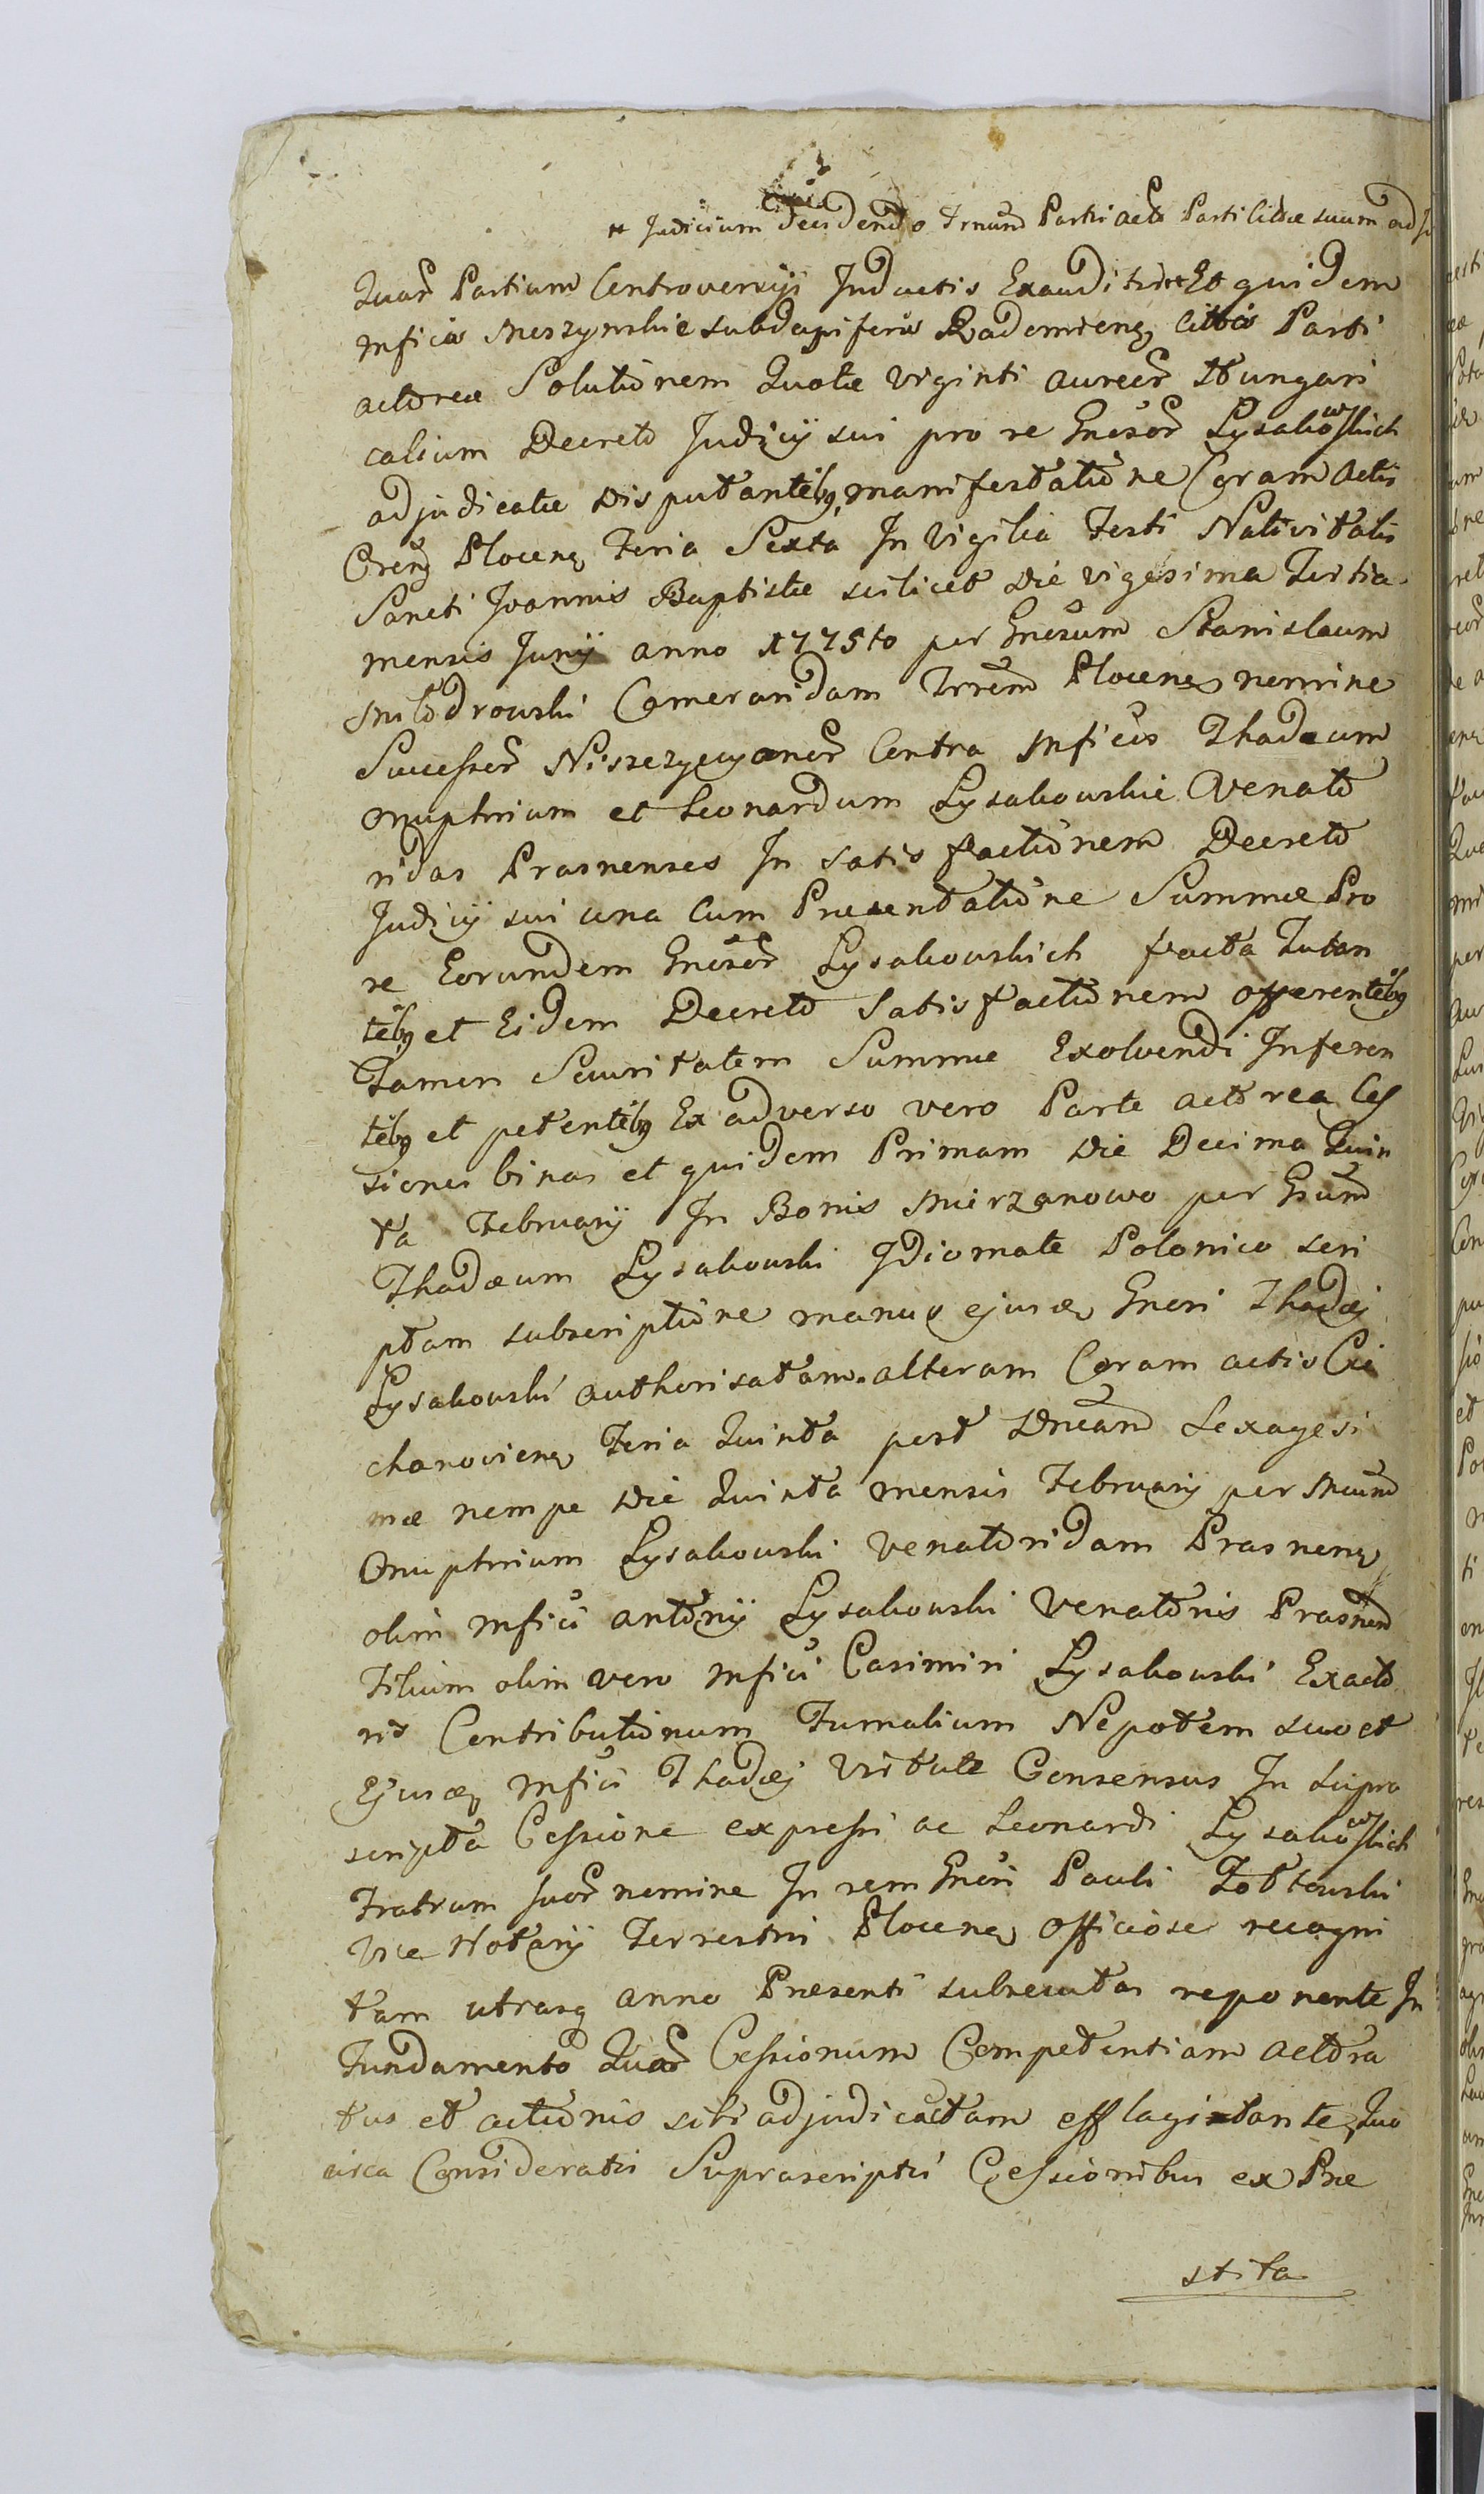 Judicium decidendo Trnum Parti act Parti Cittae suum ad
Quar Partium Controversijs Inductis Exauditis Et quidem
Mficis Meszynskie Subdapiferis Rademiens Cittis Parti
actorea Solutionem Quotae viginti aureor Hungari
calium Decreto Judicij sui pro re Gnesor Lysakowskich
adjudicatae Disputantibg, manifestatione Coram Actis
Crens Plocens Feria Sexta In Vigilia Festi Nativitatis
Sancti Joannis Baptistae scilicet Die vigesima Tertia
mensis Junij anno 1775to per Gnesum Stanislaum
Milodrowski Cameraridam Trrem Plocens nomine
Successor Niszczycyanor Contra Mficos Thadaeum
Onuphrium et Leonardum Lysakowskie Venato
ridas Prasnenses In satisfactionem Decreto
Judicij sui una Cum Praesentatione Summae Pro
re Eorundem Gnesor Lysakowskich facta Tutan
tibg et Eidem Decreto Satisfactionem offerentibg
Tamen Securitatem Summae Exolvendi Inferen
tibg et petentibg Ex adverso vero Parte actorea Ces
siones binas et quidem Primam Die Decima Quin
ta February In Bonis Mierzanowo per Gsum
Thadaeum Lysakowski Idiomate Polonico scri
ptam subscriptione manus ejusd Gnesi Thadaej
Lysakowski authorisatam. alteram Coram actis Cie
chanoviens Feria Quinta post Dnicam Sexagesi
mae nempe Die Quinta mensis February per Mcum
Onuphrium Lysakowski Venatoridam Prasnens
olim Mfici Antonij Lysakowski Venatoris Prasnen
Filium olim vero Mfici Casimiri Lysakowski Exacto
ris Contributionum Fumalium Nepotem suo et
Ejusd Mfici Thadaej Virtute Consensus In supra
scripta Cessione expressi ac Leonardi Lysakowskich
Fratrum suor nomine In rem Gnesi Pauli Zoltowski
Vice Notarij Terrestri Plocens officiose recogni
tam utrasq anno Praesenti subsecutas reponente In
Fundamento Quar Cessionum Competentiam actora
tus et actionis sibi adjudicatam efflagitante, Quo
circa Consideratis Suprascriptis Cessionibus ex Prae
stita